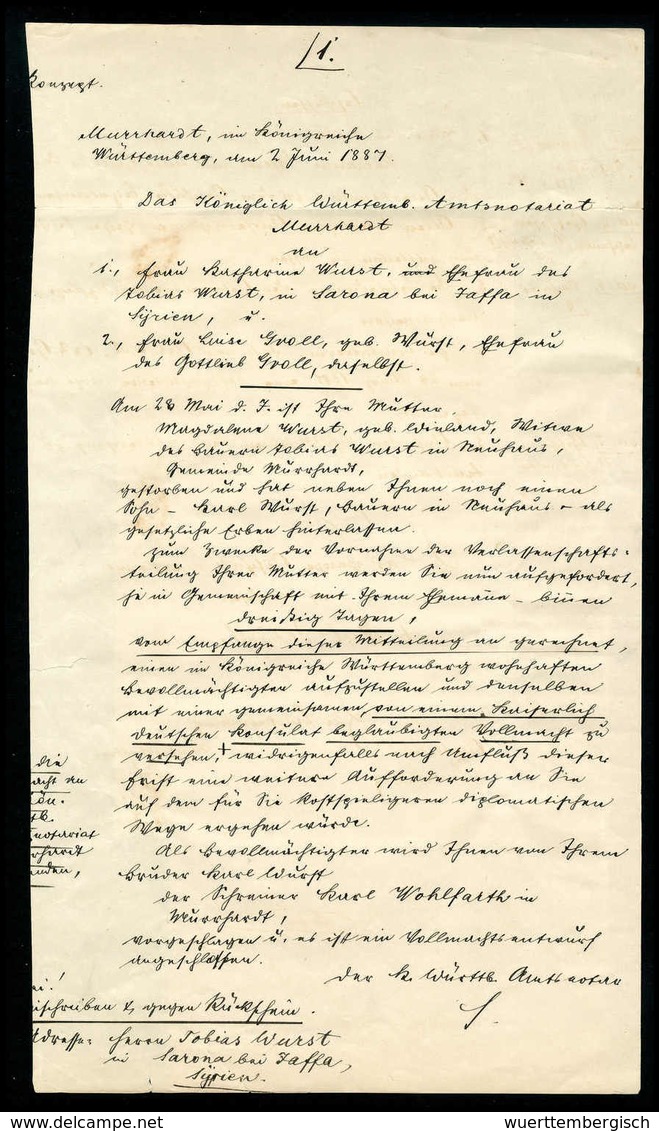 1.
Konzept.
Murrhardt, im Königreiche
Württemberg, am 2 Juni 1887.
Das Königlich Württemb. Amtsnotariat
Murrhardt
an
1., Frau Katharine Wurst, und Ehefrau des
Tobias Wurst, in Sarona bei Jaffa in
Syrien, u.
2., Frau Luise Groll, geb. Wurst, Ehefrau
des Gottlieb Groll, daselbst.
Am 28 Mai d. J. ist Ihre Mutter
Magdalene Wurst, geb. Wieland, Witwe
des Bauern Tobias Wurst in Neuhaus,
Gemeinde Murrhardt,
gestorben und hat neben Ihnen noch einen
Sohn – Karl Wurst, Bauern in Neuhaus – als
gesetzliche Erben hinterlassen.
Zum Zwecke der Vornahme der Verlassenschafts-
teilung Ihrer Mutter werden Sie nun aufgefordert,
je in Gemeinschaft mit Ihrem Ehemanne – binnen
dreißig Tagen,
vom Empfange dieser Mitteilung an gerechnet,
einen im Königreiche Württemberg wohnhaften
Bevollmächtigten aufzustellen und denselben
mit einer gemeinsamen, von einem Kaiserlich
Deutschen Konsulat beglaubigten Vollmacht zu
versehen, + widrigenfalls nach Umfluß dieser
Frist eine weitere Aufforderung an Sie
auf dem für Sie kostspieligeren diplomatischen
Wege ergehen würde.
die
acht an
ön.
tb.
notariat
rhardt
enden,
Als Bevollmächtigter wird Ihnen von Ihrem
Bruder Karl Wurst
der Schreiner Karl Wohlfarth in
Murrhardt,
vorgeschlagen u. es ist ein Vollmachtsentwurf
angeschlossen.
Der K. Württb. Amtsnotar
S.
ei!
ischreiben & gegen Rückschein.
Adresse: Herrn Tobias Wurst
in Sarona bei Jaffa,
Syrien.
wuerttembergisch